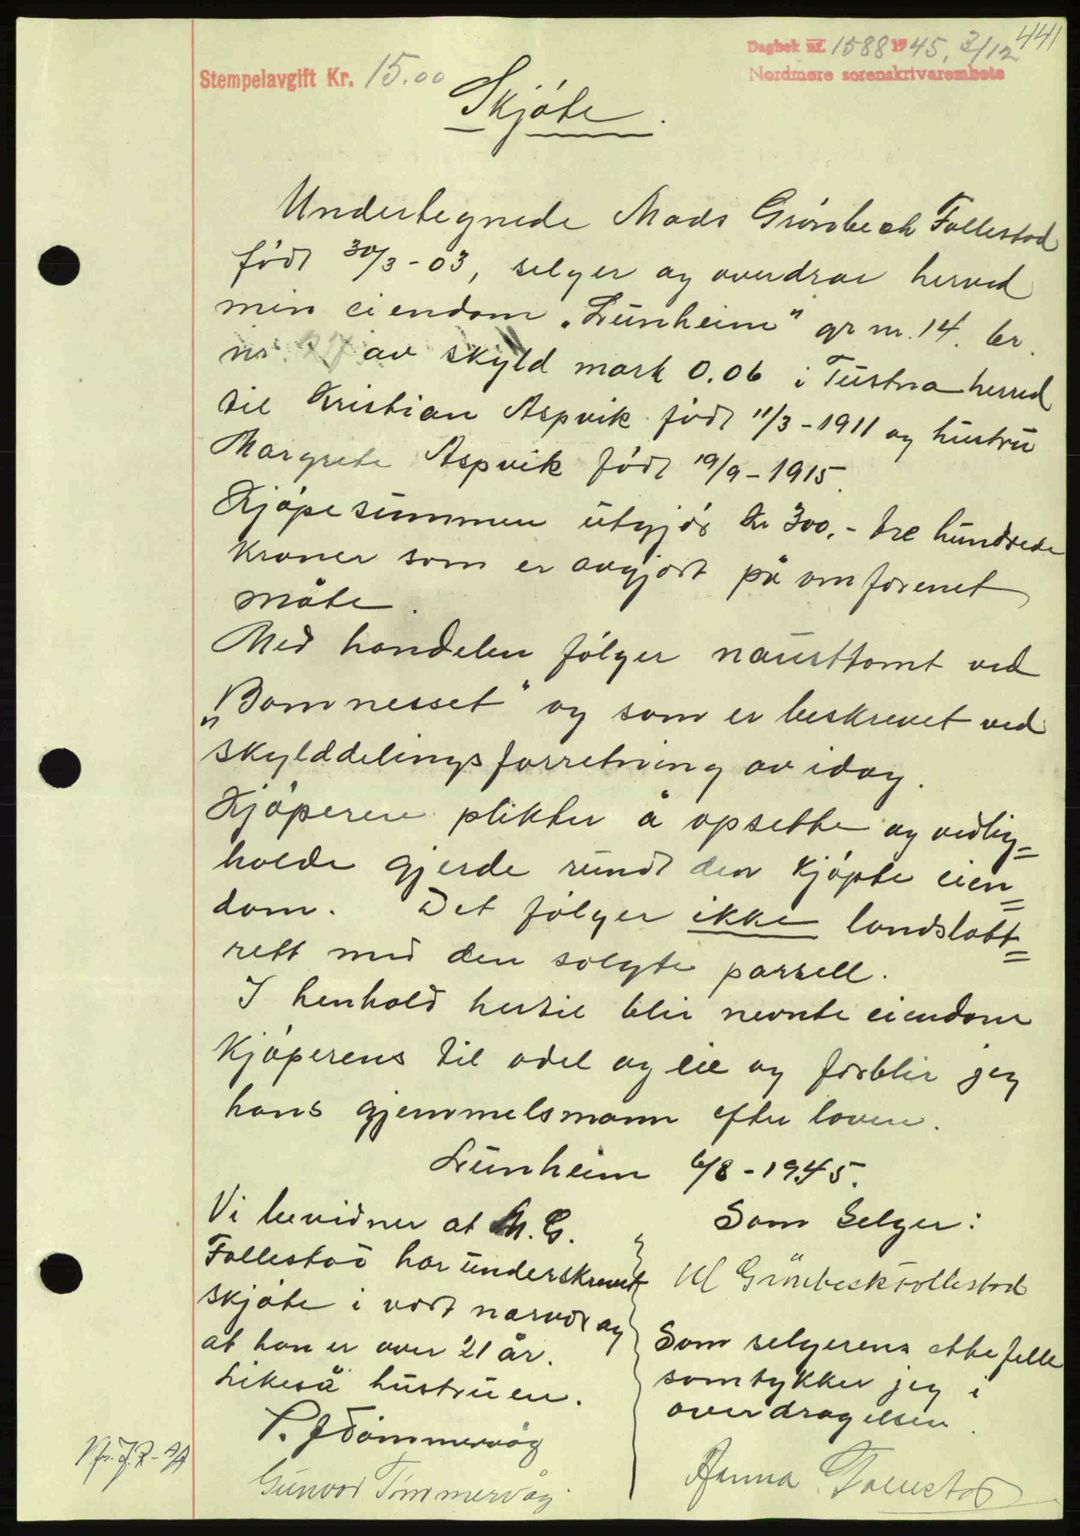 441
Dagbok nr. 1588 1945, 3/12
Nordmøre sorenskrivarembete
Stempelavgift Kr. 15.00
Skjøte.
Undertegnede Mads Grønbech Follestad
født 30/3-03, selger og overdrar herved
min eiendom „Lünheim" gr nr. 14. br.
nr. 27 av skyld mark 0.06 i Tüstna herred
til Kristian Aspvik født 11/3-1911 og hüstrü
Margrete Aspvik født 19/9-1915.
Kjøpesümmen ütgjør kr 300,- tre hündrede
kroner som er avgjort på omforenet
måte.
Med handelen følger naüsttomt ved
„Bomnesset" og som er beskrevet ved
skylddelingsforretning av idag.
Kjøperen plikter å opsette og vedlig=
holde gjerde ründt den kjøpte eien=
dom. Det følger ikke landslått=
rett med den solgte parsell.
I henhold hertil blir nevnte eiendom
Kjøperens til odel og eie og forblir jeg
hans hjemmelsmann efter loven.
Lünheim 6/8-1945.
Vi bevidner at M. G.
Follestad har ünderskrevet
skjøte i vort nærvær og
at han er over 21 år.
Likeså hüstrüen.
P. J Tømmervåg
Günvor Tømmervåg
Som Selger:
M Grönbeck Follestad
Som selgerens ektefelle
samtykker jeg i
overdragelsen.
Anna Follestad